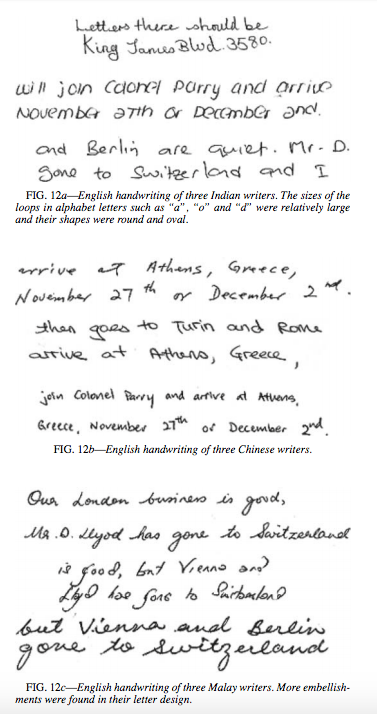 Letters there should be
King James Blvd. 3580.
will join Colonel Parry and arrive
November 27th or December 2nd.
and Berlin are quiet. Mr. D.
gone to Switzerland and I
FIG. 12a—English handwriting of three Indian writers. The sizes of the
loops in alphabet letters such as “a”, “o” and “d” were relatively large
and their shapes were round and oval.
arrive at Athens, Greece,
November 27th or December 2nd.
then goes to Turin and Rome
arrive at Athens, Greece,
join Colonel Parry and arrive at Athens,
Greece, November 27th or December 2nd.
FIG. 12b—English handwriting of three Chinese writers.
Our London business is good,
Mr. D. Llyod has gone to Switzerland
is good, but Vienna and
Llyd has gone to Switzerland
but Vienna and Berlin
gone to Switzerland
FIG. 12c—English handwriting of three Malay writers. More embellish-
ments were found in their letter design.